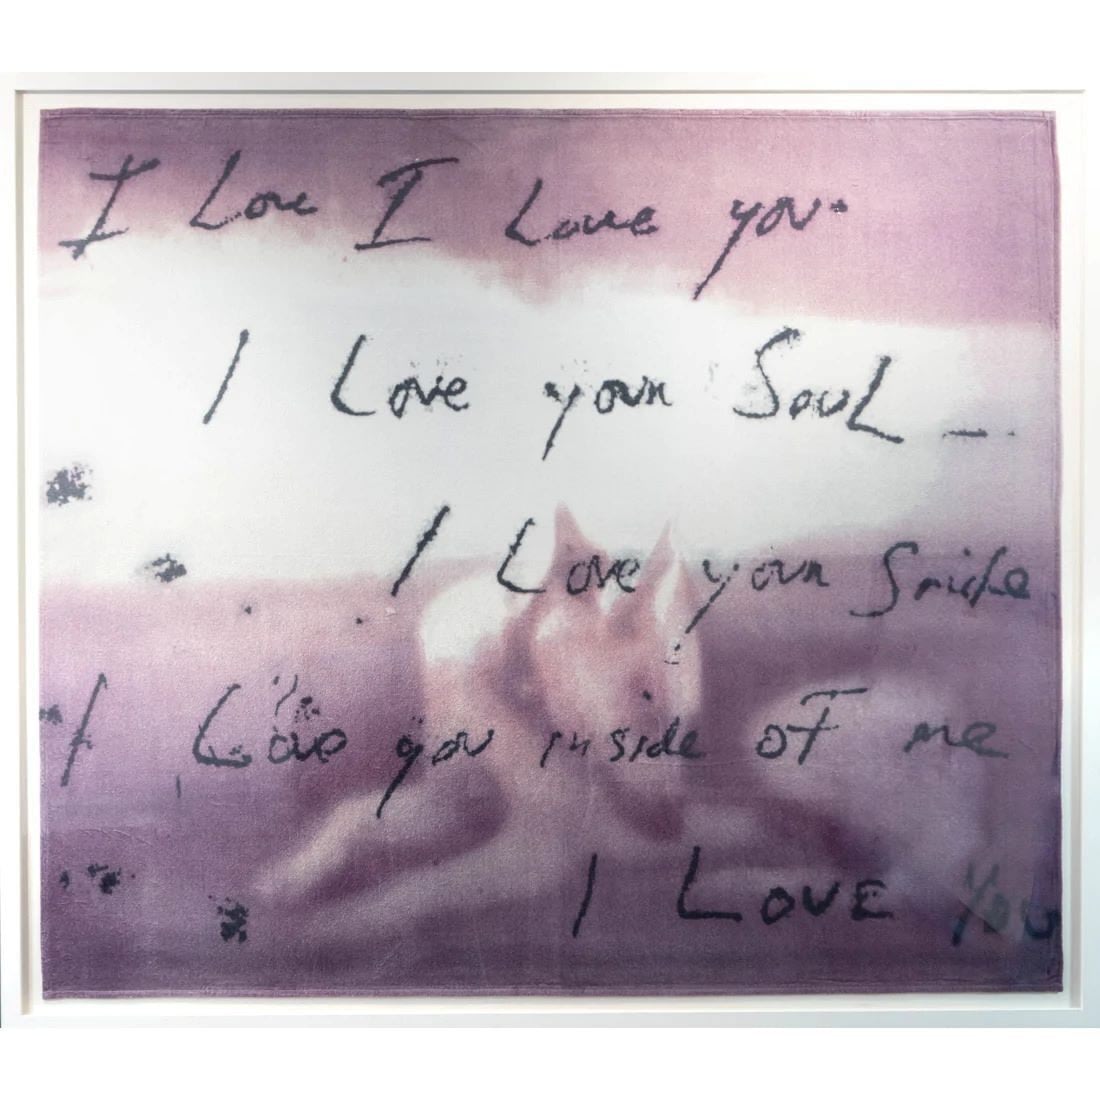 I Love I Love you.
I Love your Soul –
I Love your Smile
I Love you inside of me
I LOVE You